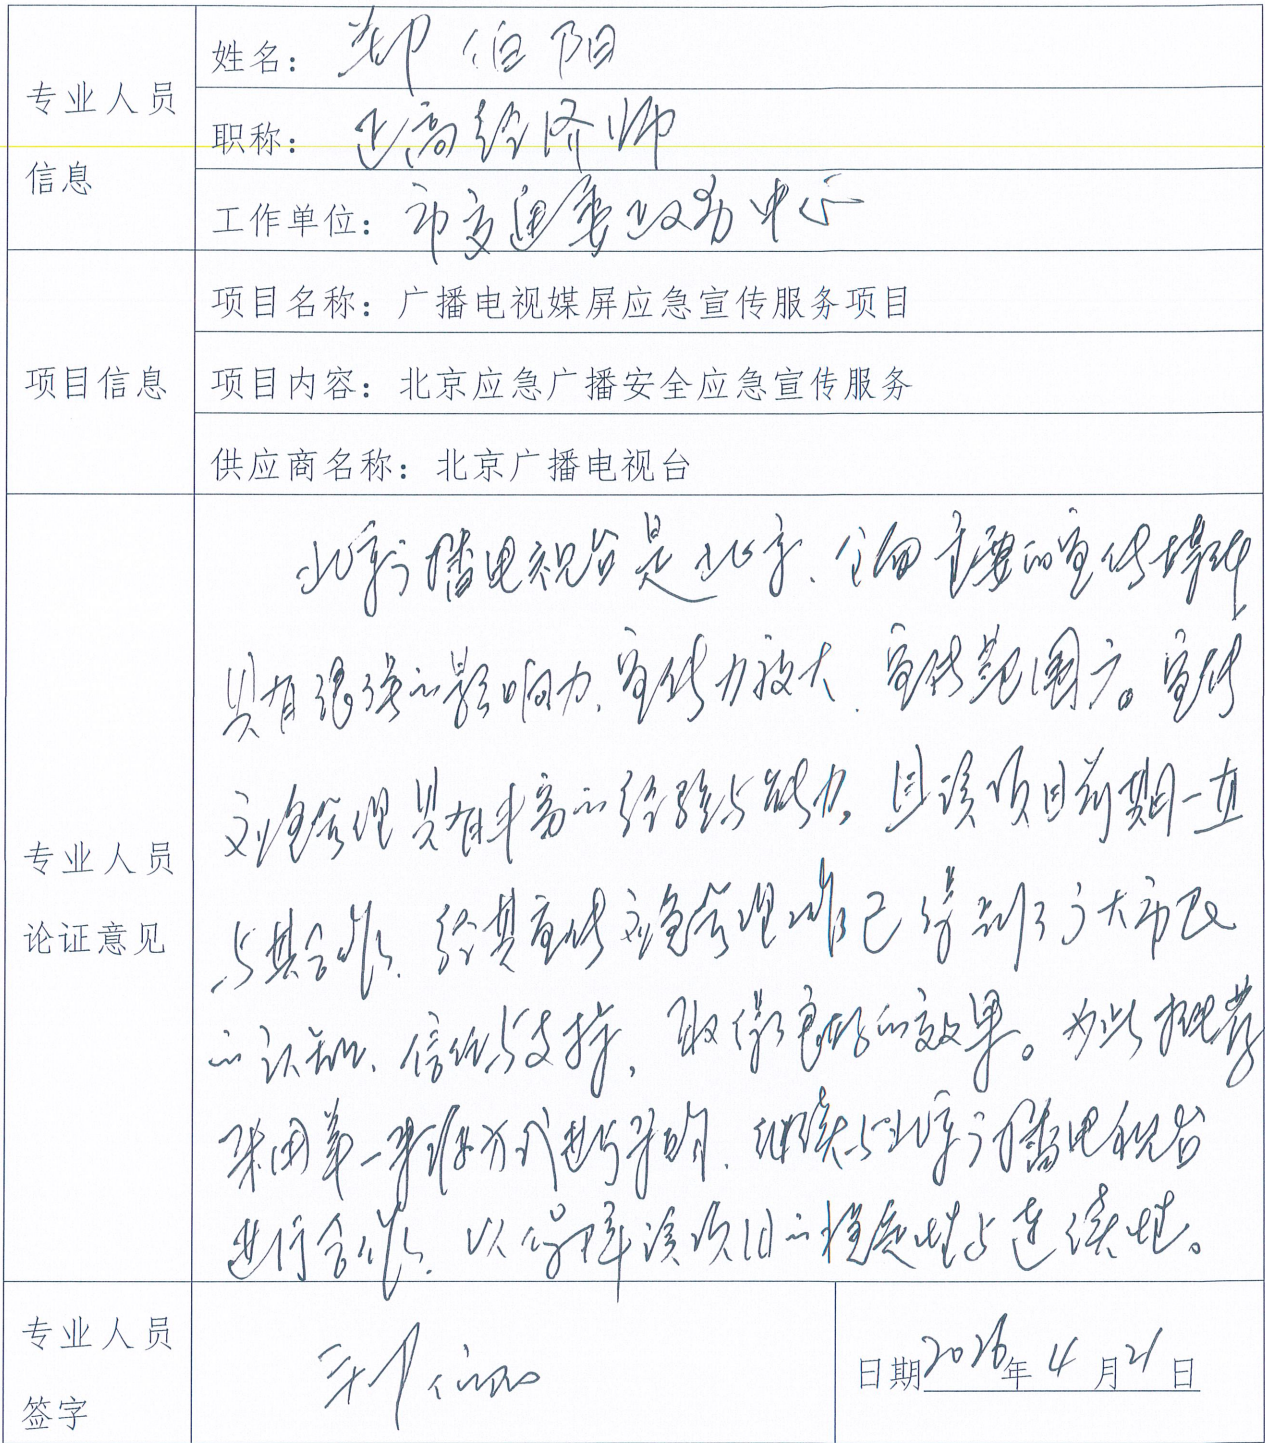 专业人员
信息
姓名：郑伯阳
职称：正高经济师
工作单位：市交通委政务中心
项目信息
项目名称：广播电视媒屏应急宣传服务项目
项目内容：北京应急广播安全应急宣传服务
供应商名称：北京广播电视台
专业人员
论证意见
北京广播电视台是北京、全国主要的宣传媒体
具有很强的影响力、宣传力较大、宣传范围广。宣传
应急管理具有丰富的经验与能力。且该项目前期一直
与其合作、经其宣传应急管理工作已得到了广大市民
的认知、信任与支持，取得了良好的效果。为此推荐
采用单一来源方式进行采购、继续与北京广播电视台
进行合作、以保障该项目的稳定性与连续性。
专业人员
签字
郑伯阳
日期2026年4月21日